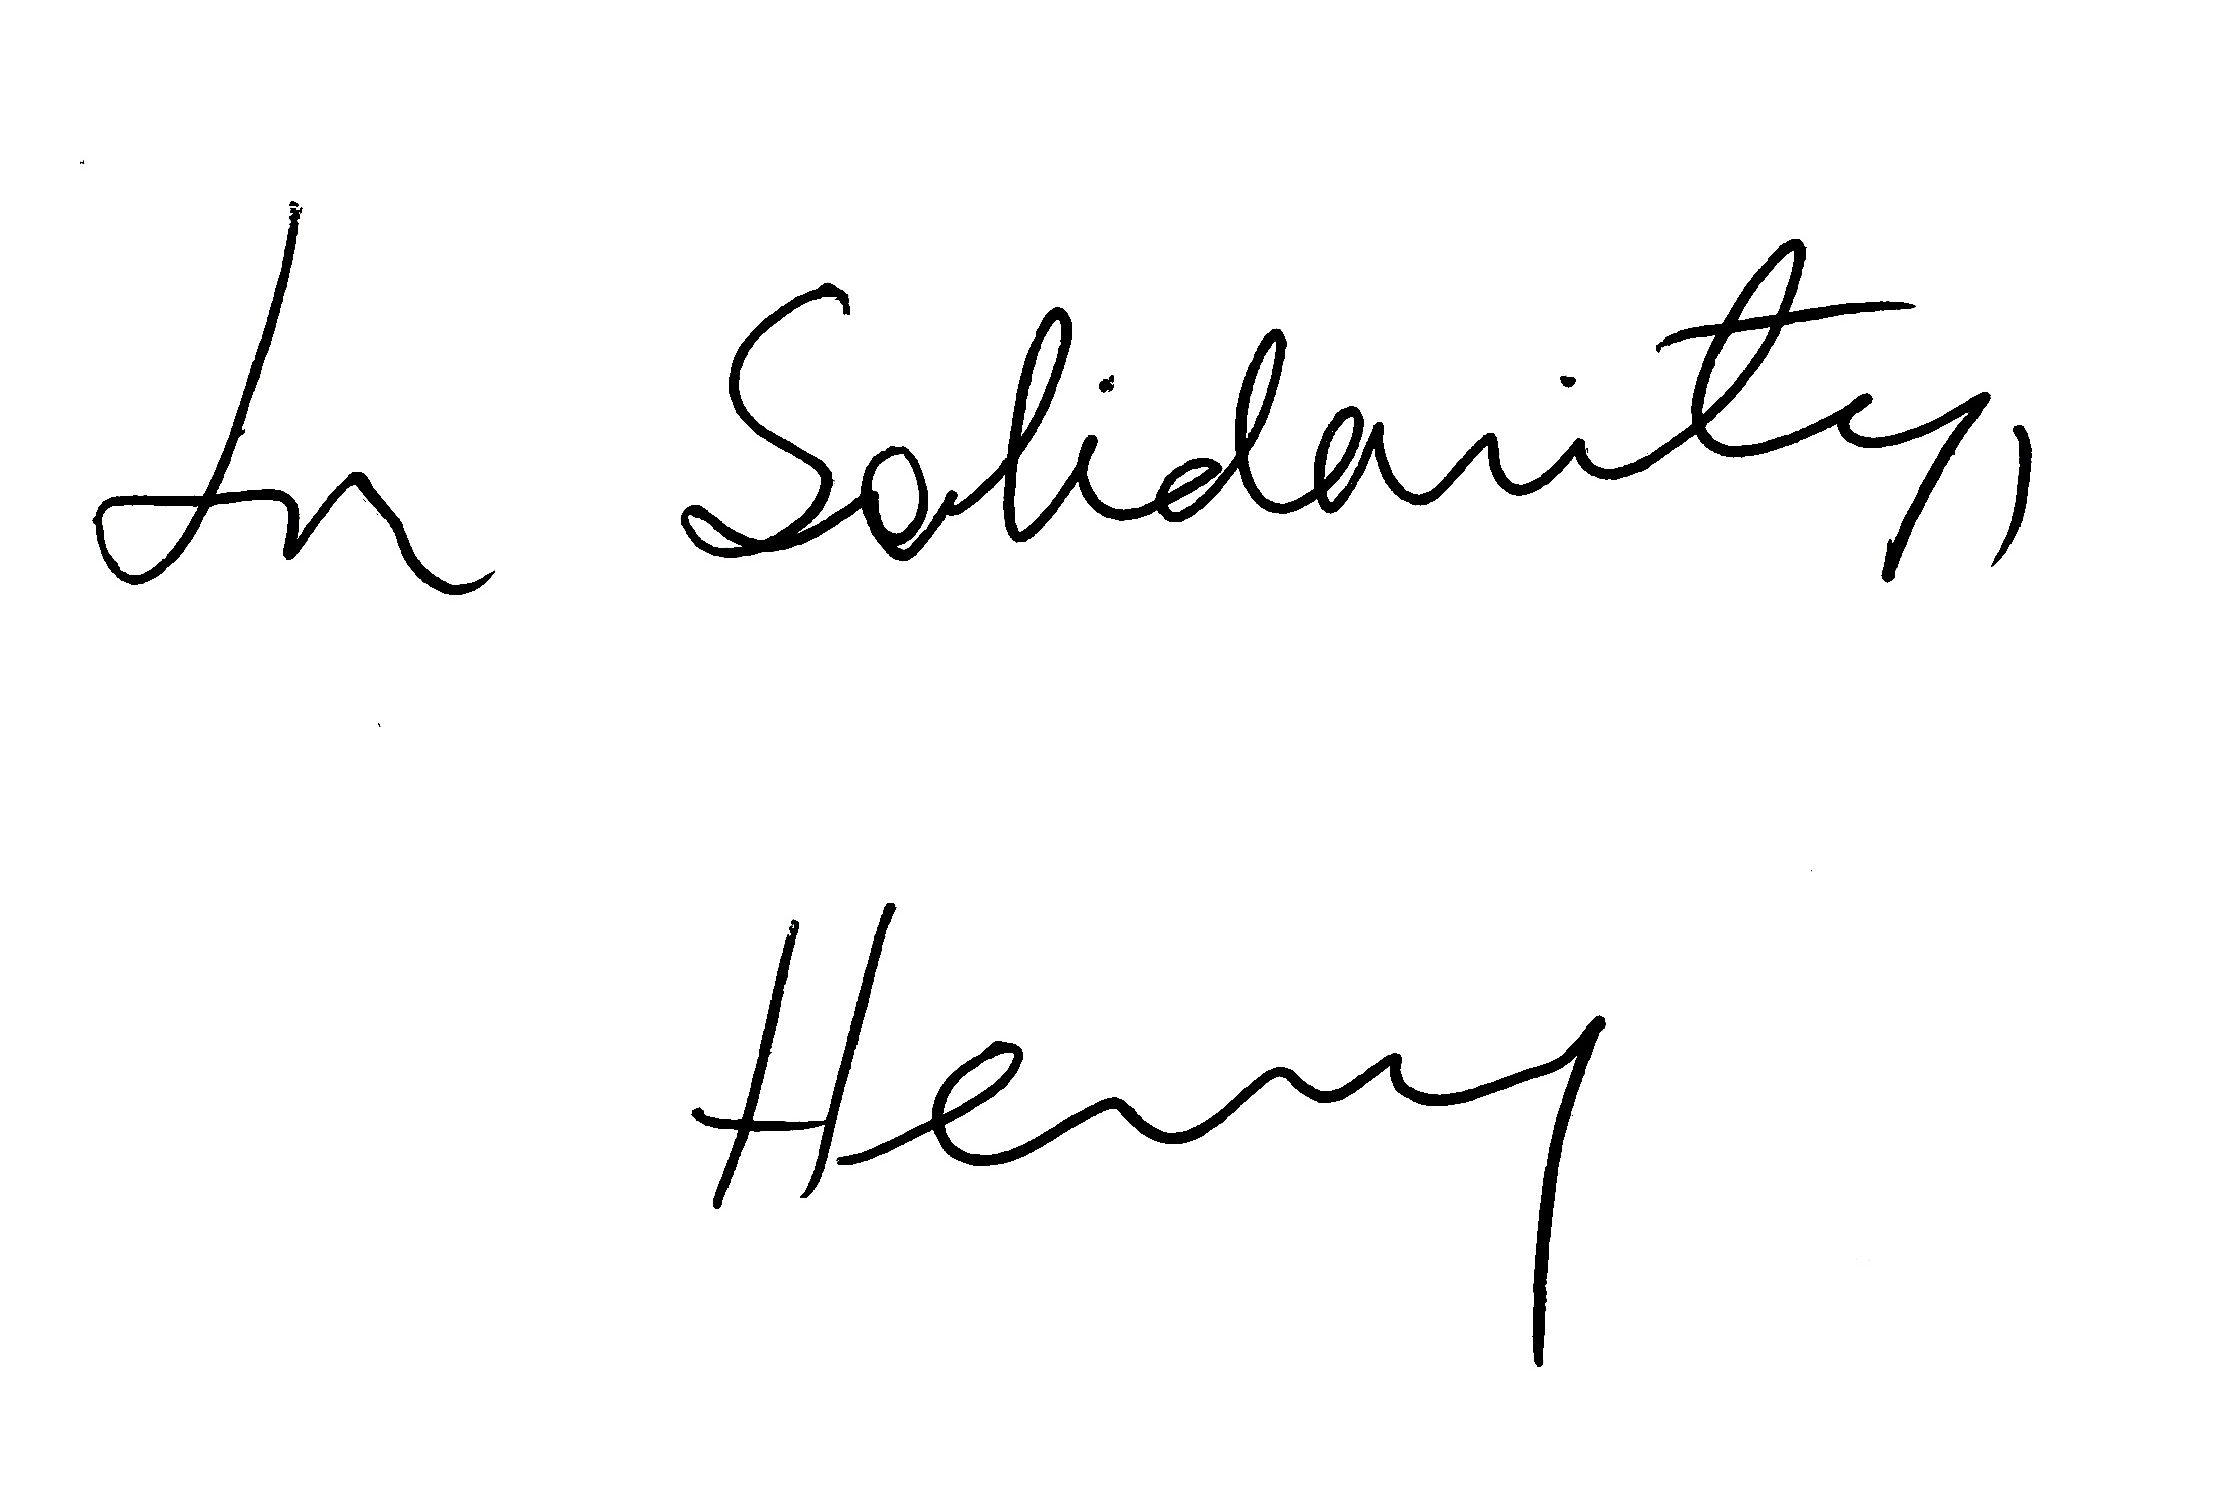 In Solidarity,
Henry